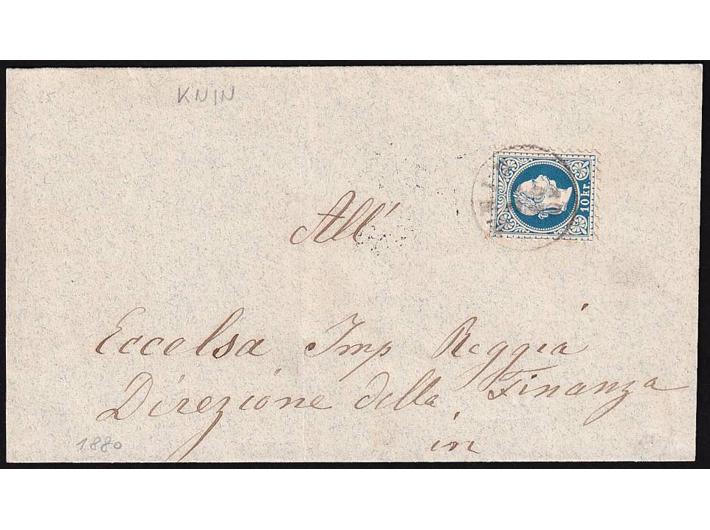 KNIN
10 kr.
All'
Eccelsa Imp Reggia
Direzione della Finanza
in
1880